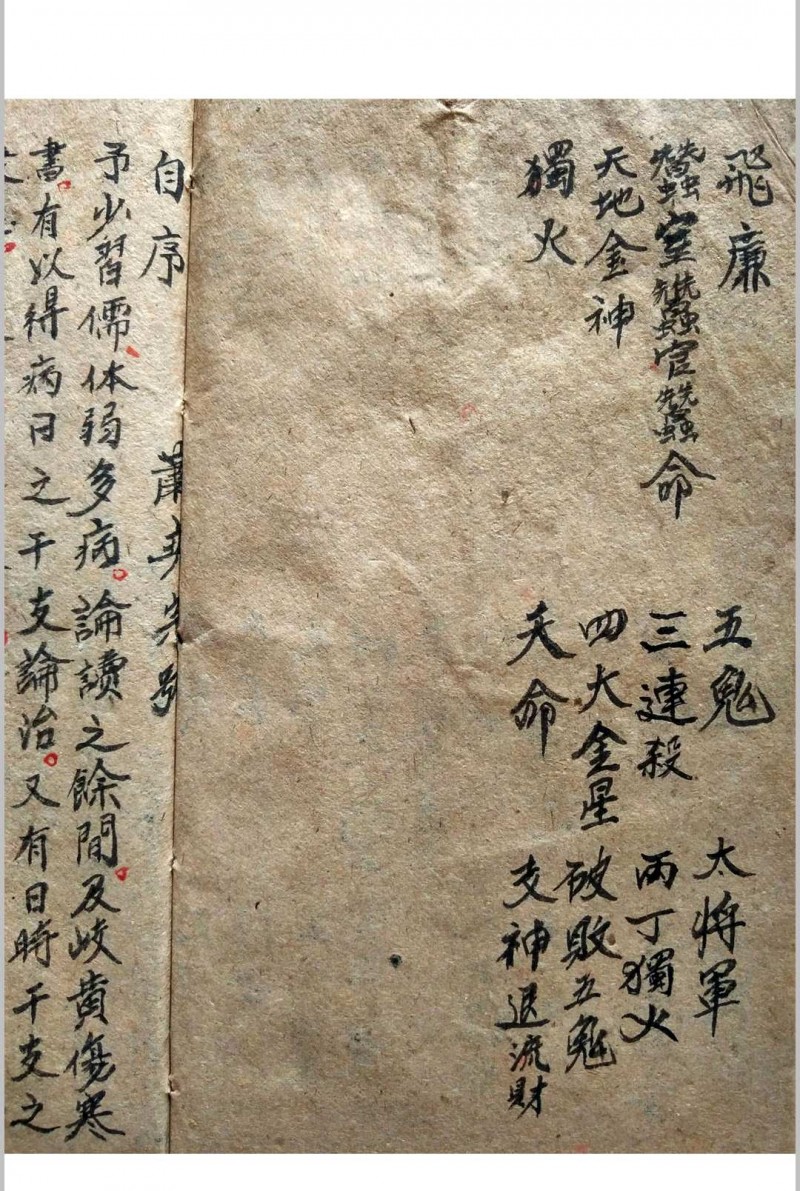 飛廉
蠶室蠶官蠶命
天地金神
獨火
五鬼
三連殺
四大金星
天命
太將軍
丙丁獨火
破敗五鬼
支神退流財
自序
予少習儒體弱多病。論讀之餘間。及岐黄傷寒
書。有以得病日之干支論治。又有日時干支之